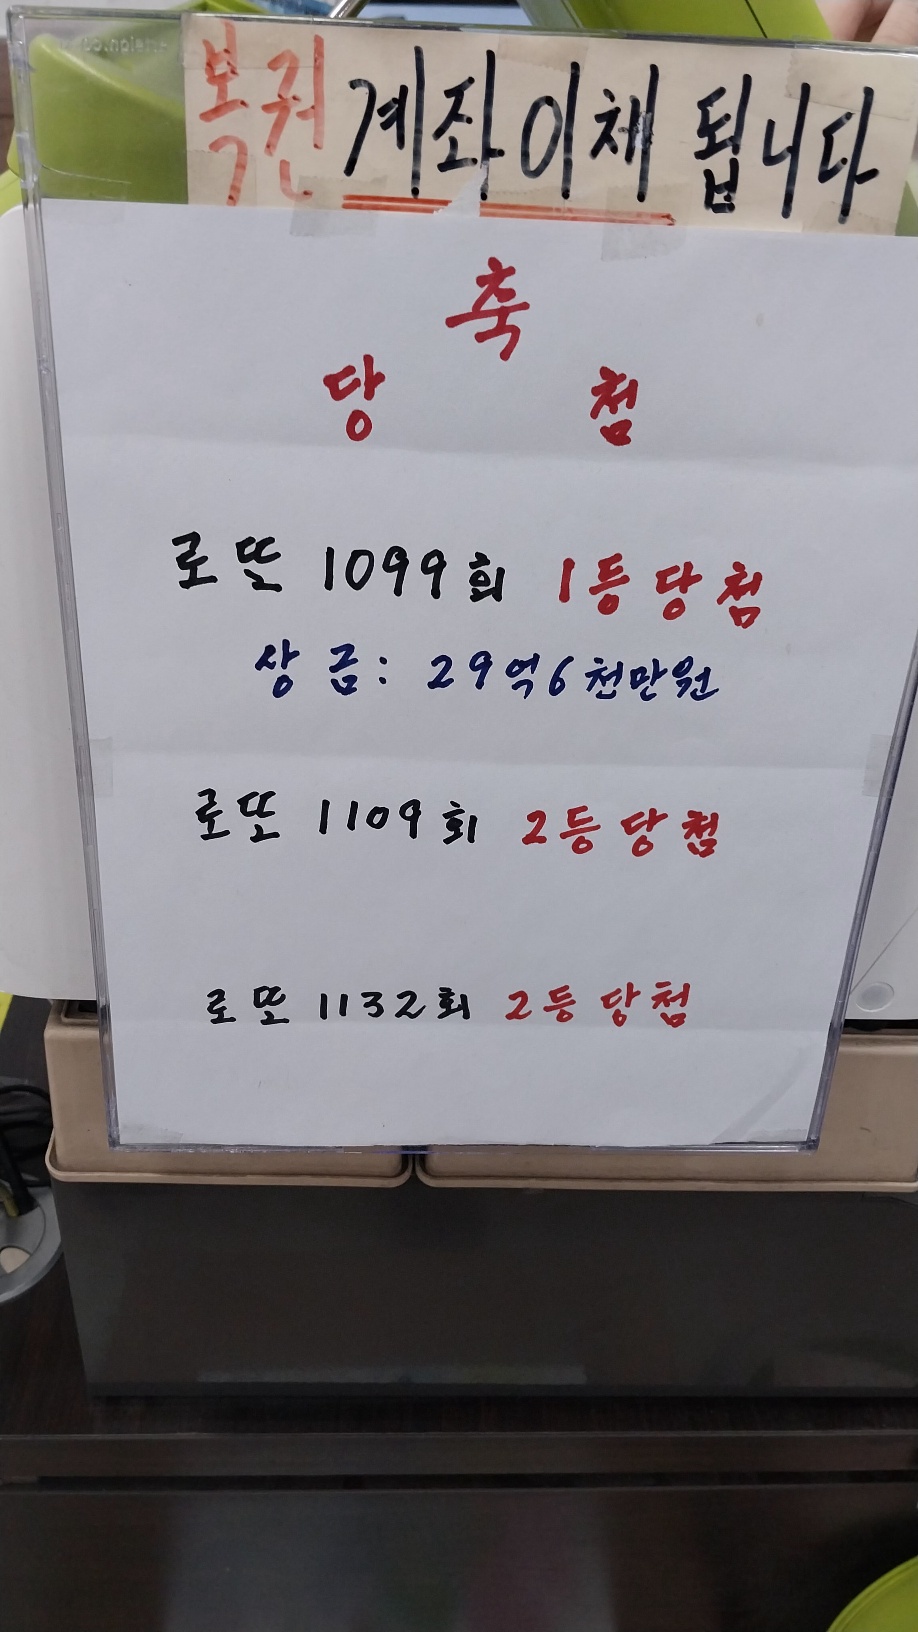 복권 계좌이체 됩니다
축
당 첨
로또 1099회 1등 당첨
상금: 29억6천만원
로또 1109회 2등 당첨
로또 1132회 2등 당첨